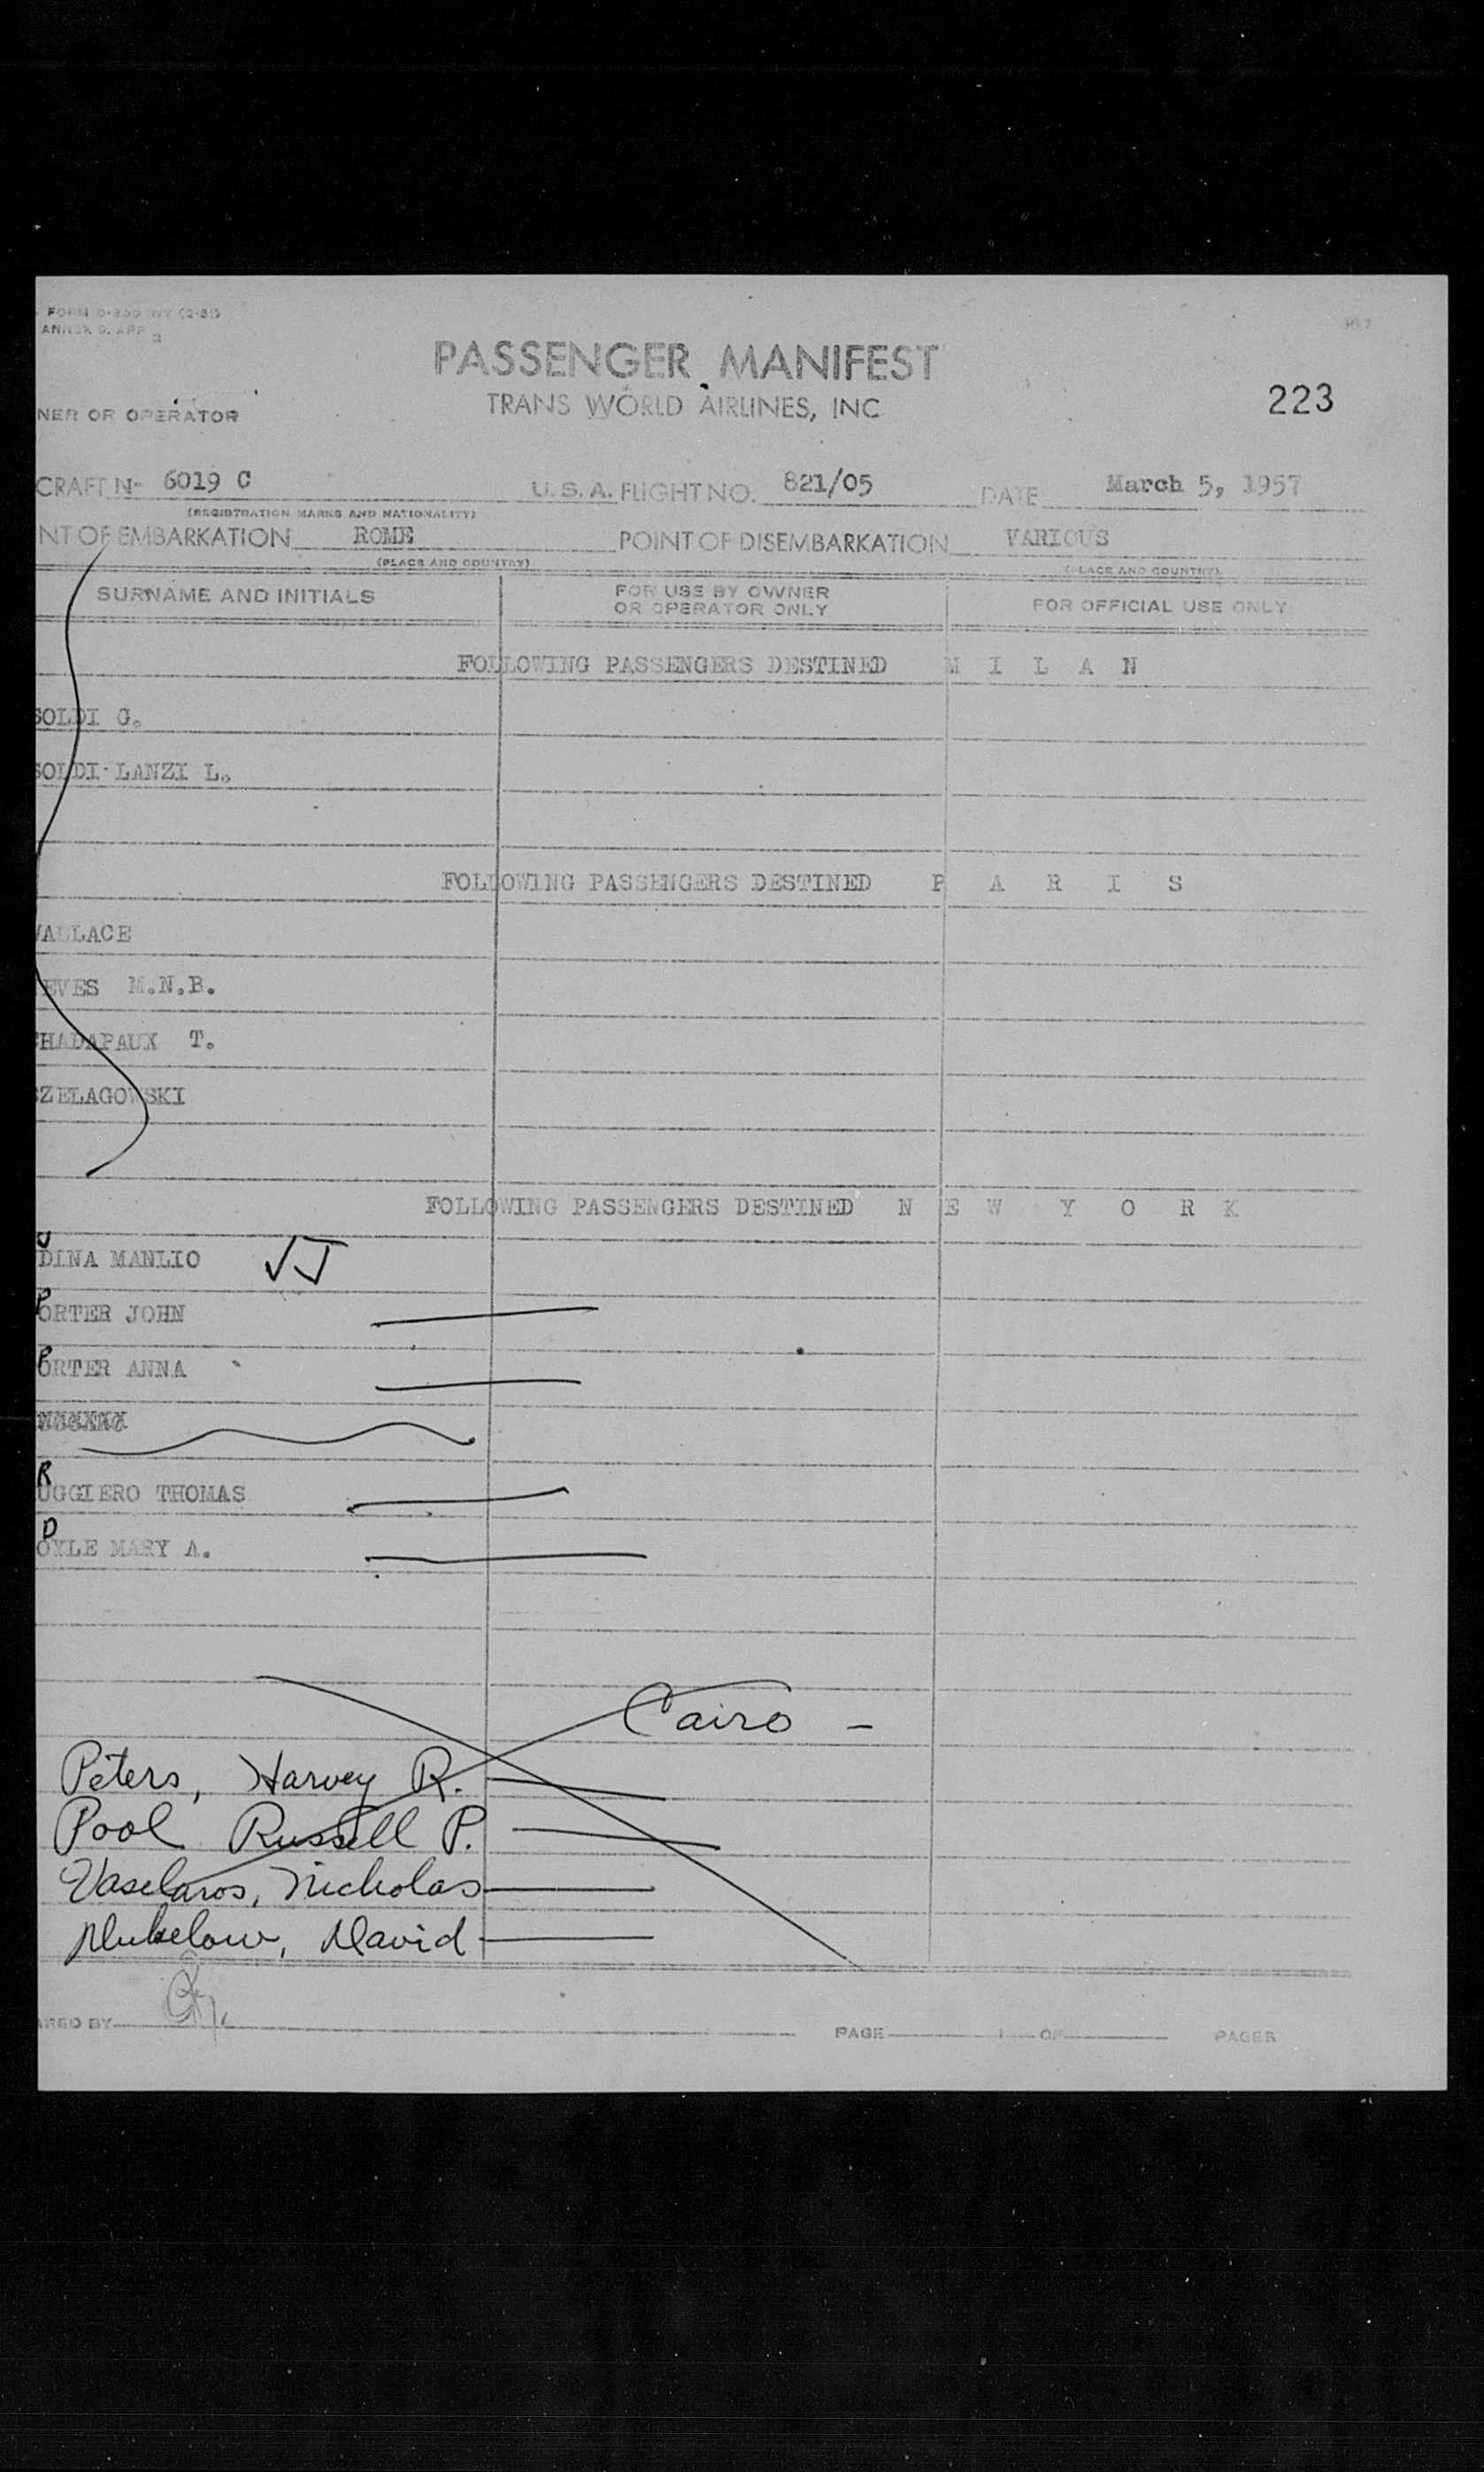 FORM
ANNEX 9. APP 2
PASSENGER MANIFEST
TRANS WORLD AIRLINES, INC
223
NER OR OPERATOR
CRAFT Nº 6019 C U.S.A. FLIGHT NO. 821/05 DATE March 5, 1957
(REGISTRATION MARKS AND NATIONALITY)
NT OF EMBARKATION ROME POINT OF DISEMBARKATION VARIOUS
(PLACE AND COUNTRY) (PLACE AND COUNTRY)
SURNAME AND INITIALS FOR USE BY OWNER OR OPERATOR ONLY FOR OFFICIAL USE ONLY
FOLLOWING PASSENGERS DESTINED M I L A N
SOLDI G.
SOLDI-LANZI L.
FOLLOWING PASSENGERS DESTINED P A R I S
WALLACE
EVES M.N.B.
HADAPAUX T.
SZELAGOWSKI
FOLLOWING PASSENGERS DESTINED N E W Y O R K
DINA MANLIO √J
PORTER JOHN
PORTER ANNA
RUGGIERO THOMAS
DOYLE MARY A.
Cairo -
Peters, Harvey R.
Pool Russell P.
Vaselaros, Nicholas
David
ARED BY PAGE OF PAGES